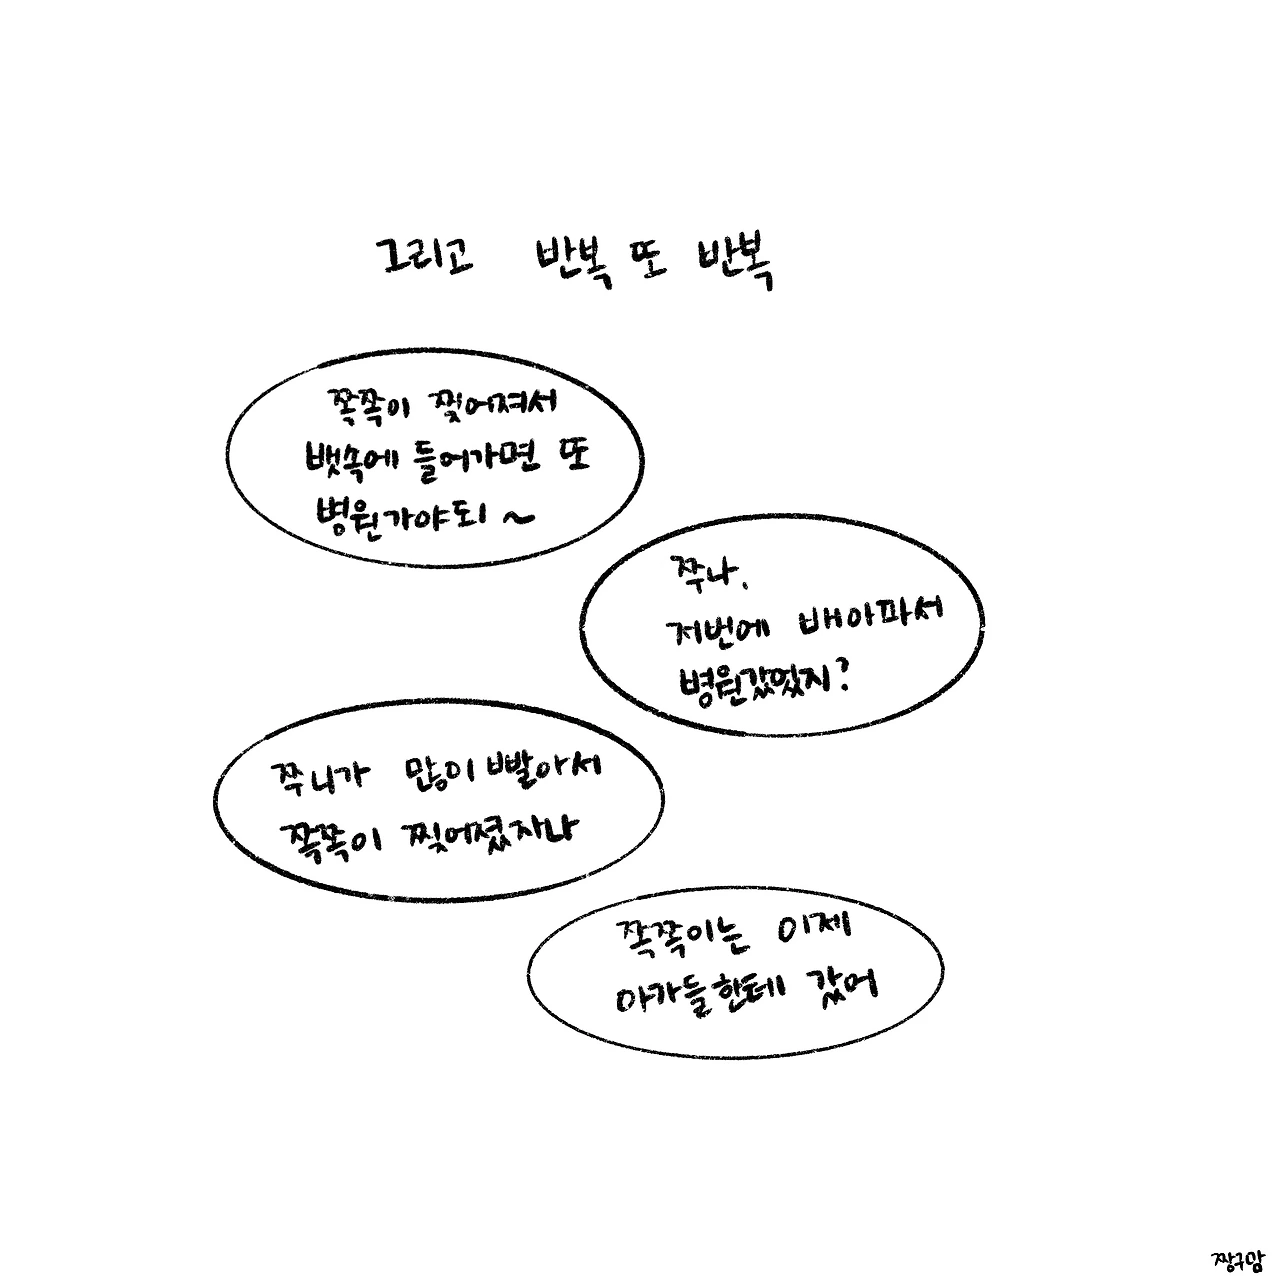 그리고 반복 또 반복
쪽쪽이 찢어져서
뱃속에 들어가면 또
병원가야되~
쭈나,
저번에 배아파서
병원갔었지?
쭈니가 많이 빨아서
쪽쪽이 찢어졌자나
쪽쪽이는 이제
아가들한테 갔어
짱구맘